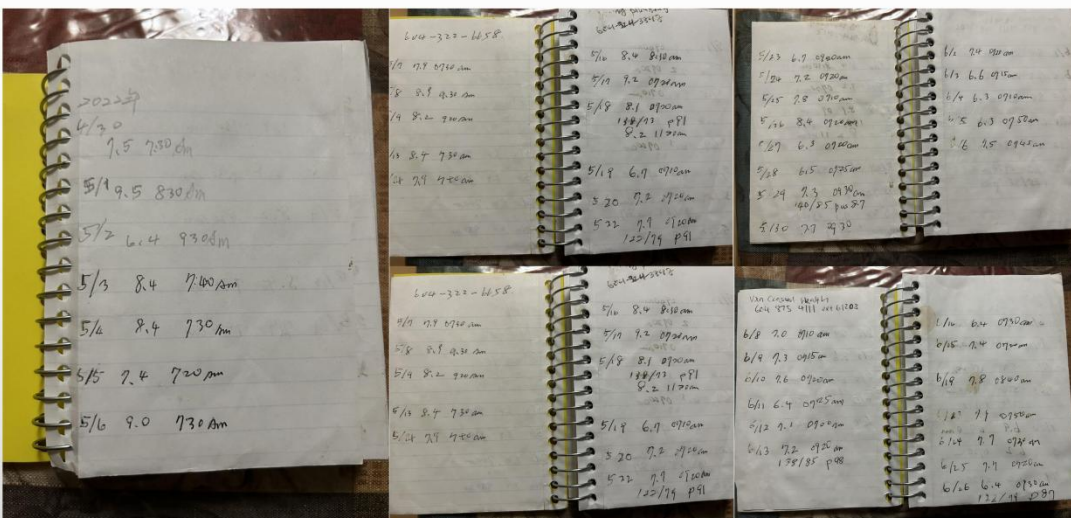 2022年
4/30
7.5 730am
5/1 9.5 830am
5/2 6.4 930am
5/3 8.4 7:40am
5/4 8.4 730am
5/5 7.4 720am
5/6 9.0 730am
604-322-6658
5/7 7.9 0730am
5/8 8.9 930am
5/9 8.2 920am
5/13 8.4 730am
7.9
5/16 8.4 830am
5/17 9.2 0720am
5/18 8.1 0720am
138/73 p91
8.2 1120am
5/19 6.7 0710am
5 20 7.2 0720am
5 22 7.7 0720am
122/79 p91
5/23 6.7 0700am
5/24 7.2 0720am
5/25 7.8 0710am
5/26 8.4 0720am
5/27 6.3 0700am
5/28 6.5 0725am
5 29 7.3 0730am
140/85 p 87
5/30 7.7 0730
6/2 7.4
6/3 6.6 0715am
6/4 6.3 0710am
6/5 6.3 0750am
6/6 7.5 0745am
604-322-6658
5/7 7.9 0730am
5/8 8.9 930am
5/9 8.2 920am
5/13 8.4 730am
7.9
5/16 8.4 830am
5/17 9.2 0720am
5/18 8.1 0720am
138/73 p91
8.2 1120am
5/19 6.7 0710am
5 20 7.2 0720am
5 22 7.7 0720am
122/79 p91
Van Coastal Health
604 875 4111
6/8 7.0 0710am
6/9 7.3 0715am
6/10 7.6 0720am
6/11 6.4 0725am
6/12 7.1 0700am
6/13 7.2 0720am
138/85 p98
6.4 0730am
6/15 7.4 0720am
6/19 7.8 0840am
7.7 0750am
6/24 7.7 0720am
6/25 7.7 0720am
6/26 6.4 0730am
122/79 p87